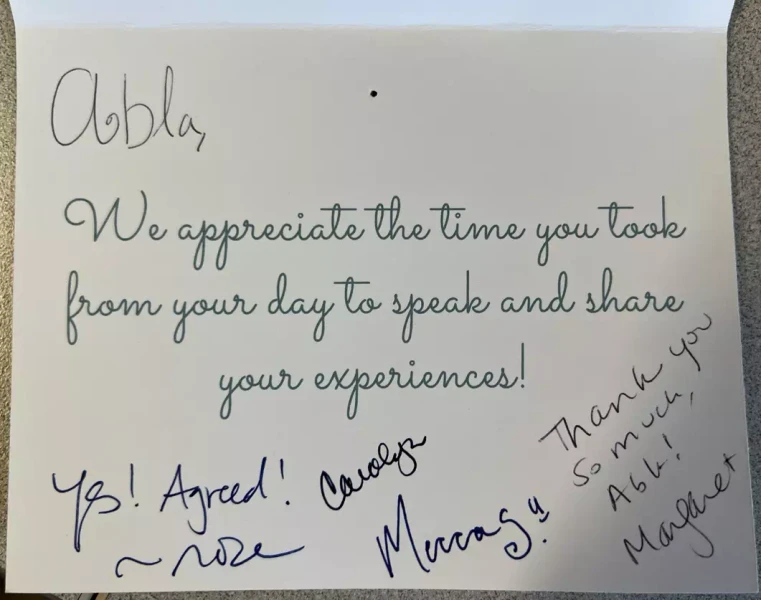 Abla,
We appreciate the time you took
from your day to speak and share
your experiences!
Yes! Agreed!
~ Roze
Carolyn
Thank you
so much,
Abla!
Margaret